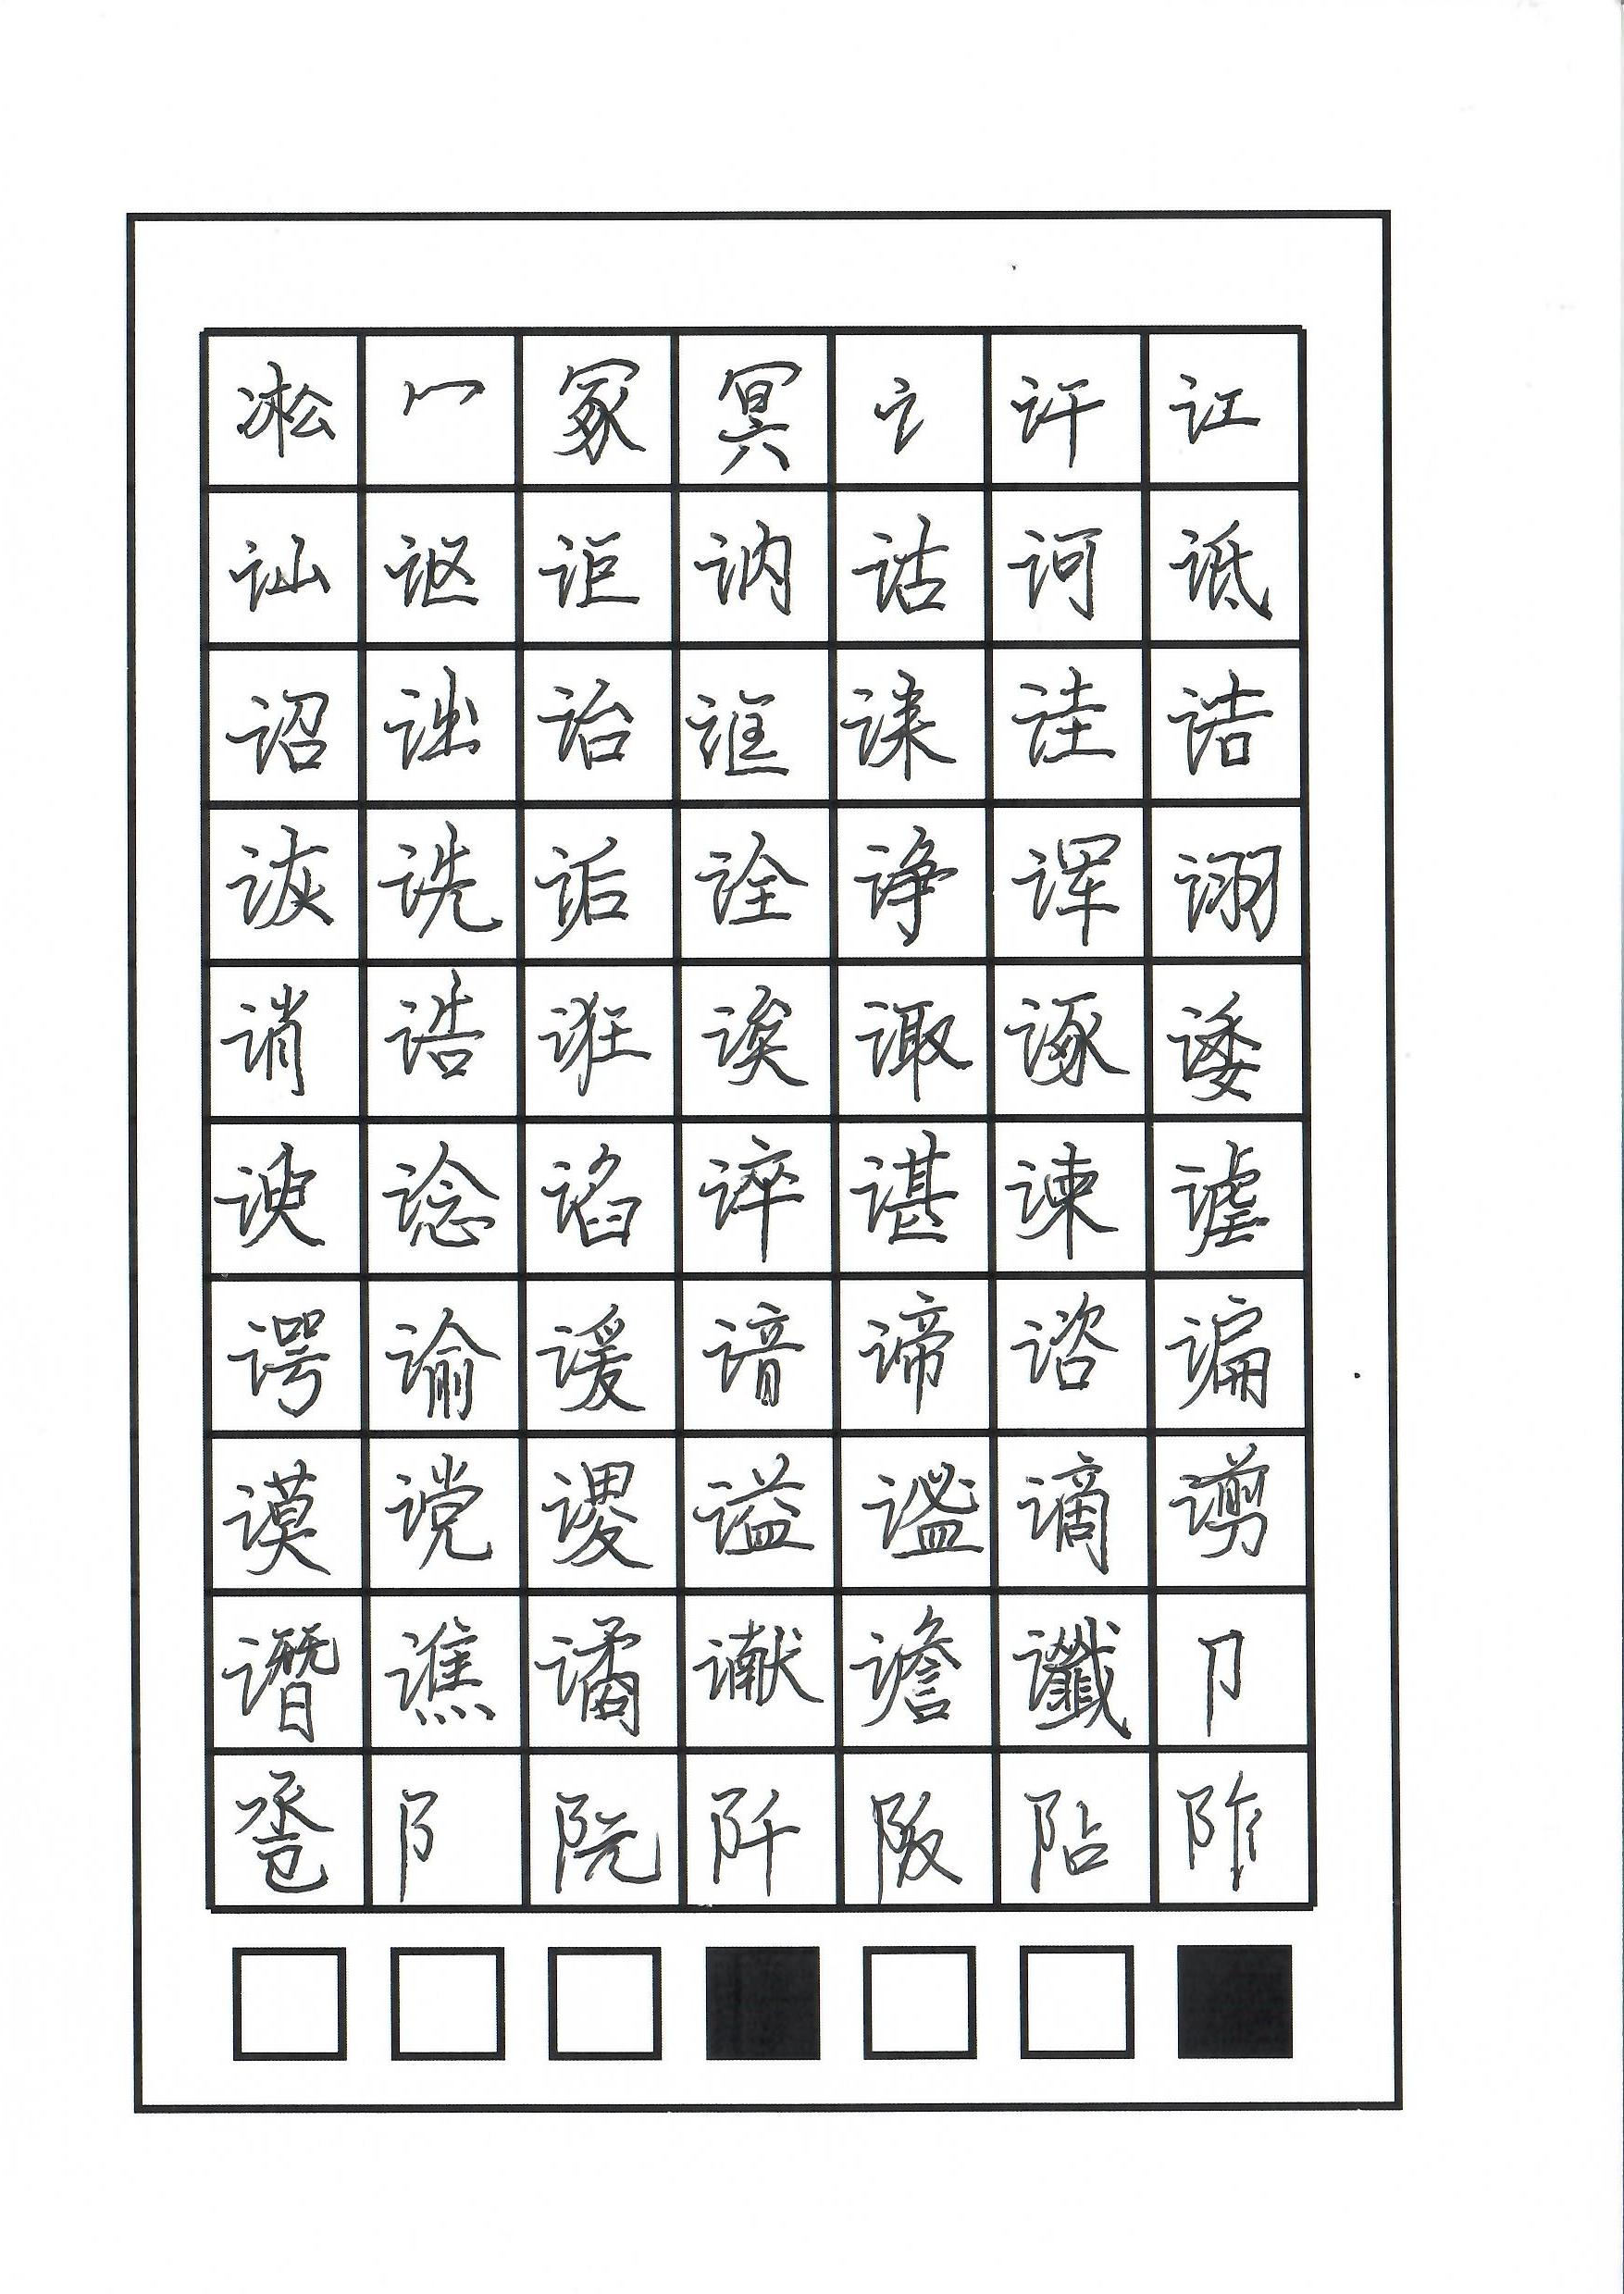 凇冖冢冥讠讦讧
讪讴讵讷诂诃诋
诏诎诒诓诔诖诘
诙诜诟诠诤诨诩
诮诰诳诶诹诼诿
谀谂谄谇谌谏谑
谔谕谖谙谛谘谝
谟谠谡谥谧谪谫
谮谯谲谳谵谶卩
卺阝阮阡阪阽阼